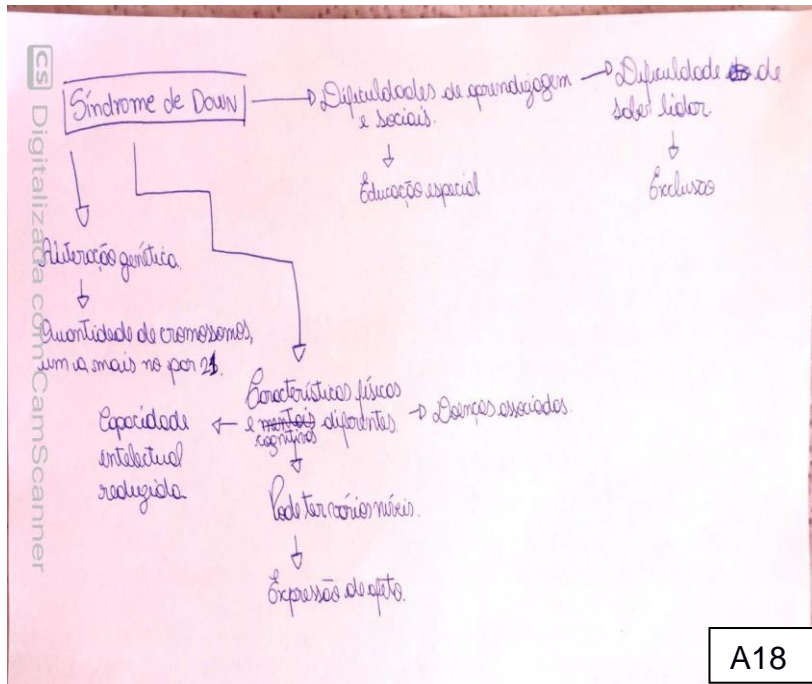 CS Digitalizada com CamScanner
Síndrome de Down
Dificuldades de aprendizagem
e sociais.
Educação especial
Dificuldade de
saber lidar.
Exclusão
Alteração genética.
Quantidade de cromossomos,
um a mais no par 21.
Características físicas
e mentais diferentes.
cognitivas
Doenças associadas.
Capacidade
intelectual
reduzida.
Pode ter vários níveis.
Expressão de afeto.
A18